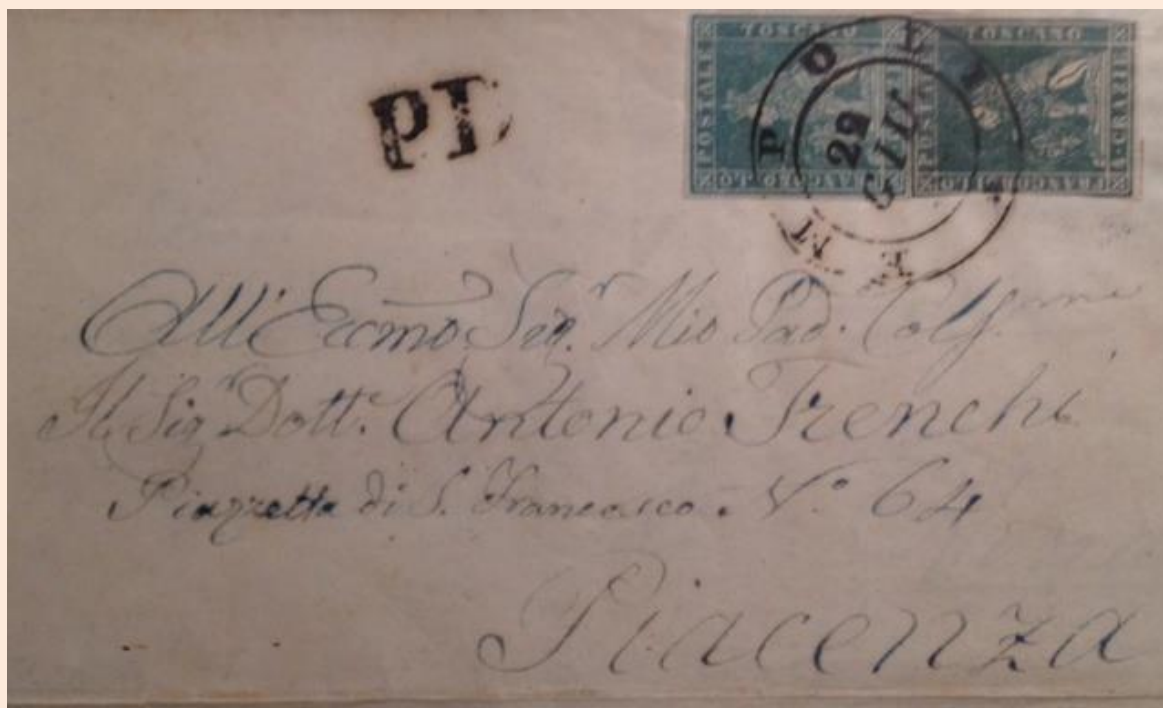 FRANCOBOLLO POSTALE TOSCANO
FRANCOBOLLO POSTALE TOSCANO
PD
EMPOLI
29
GIU
All' Eccmo Sigr. Mio Pad. Colmo
Il Sigr Dottr. Antonio Trenchi
Piazzetta di S. Francesco. N.° 64
Piacenza